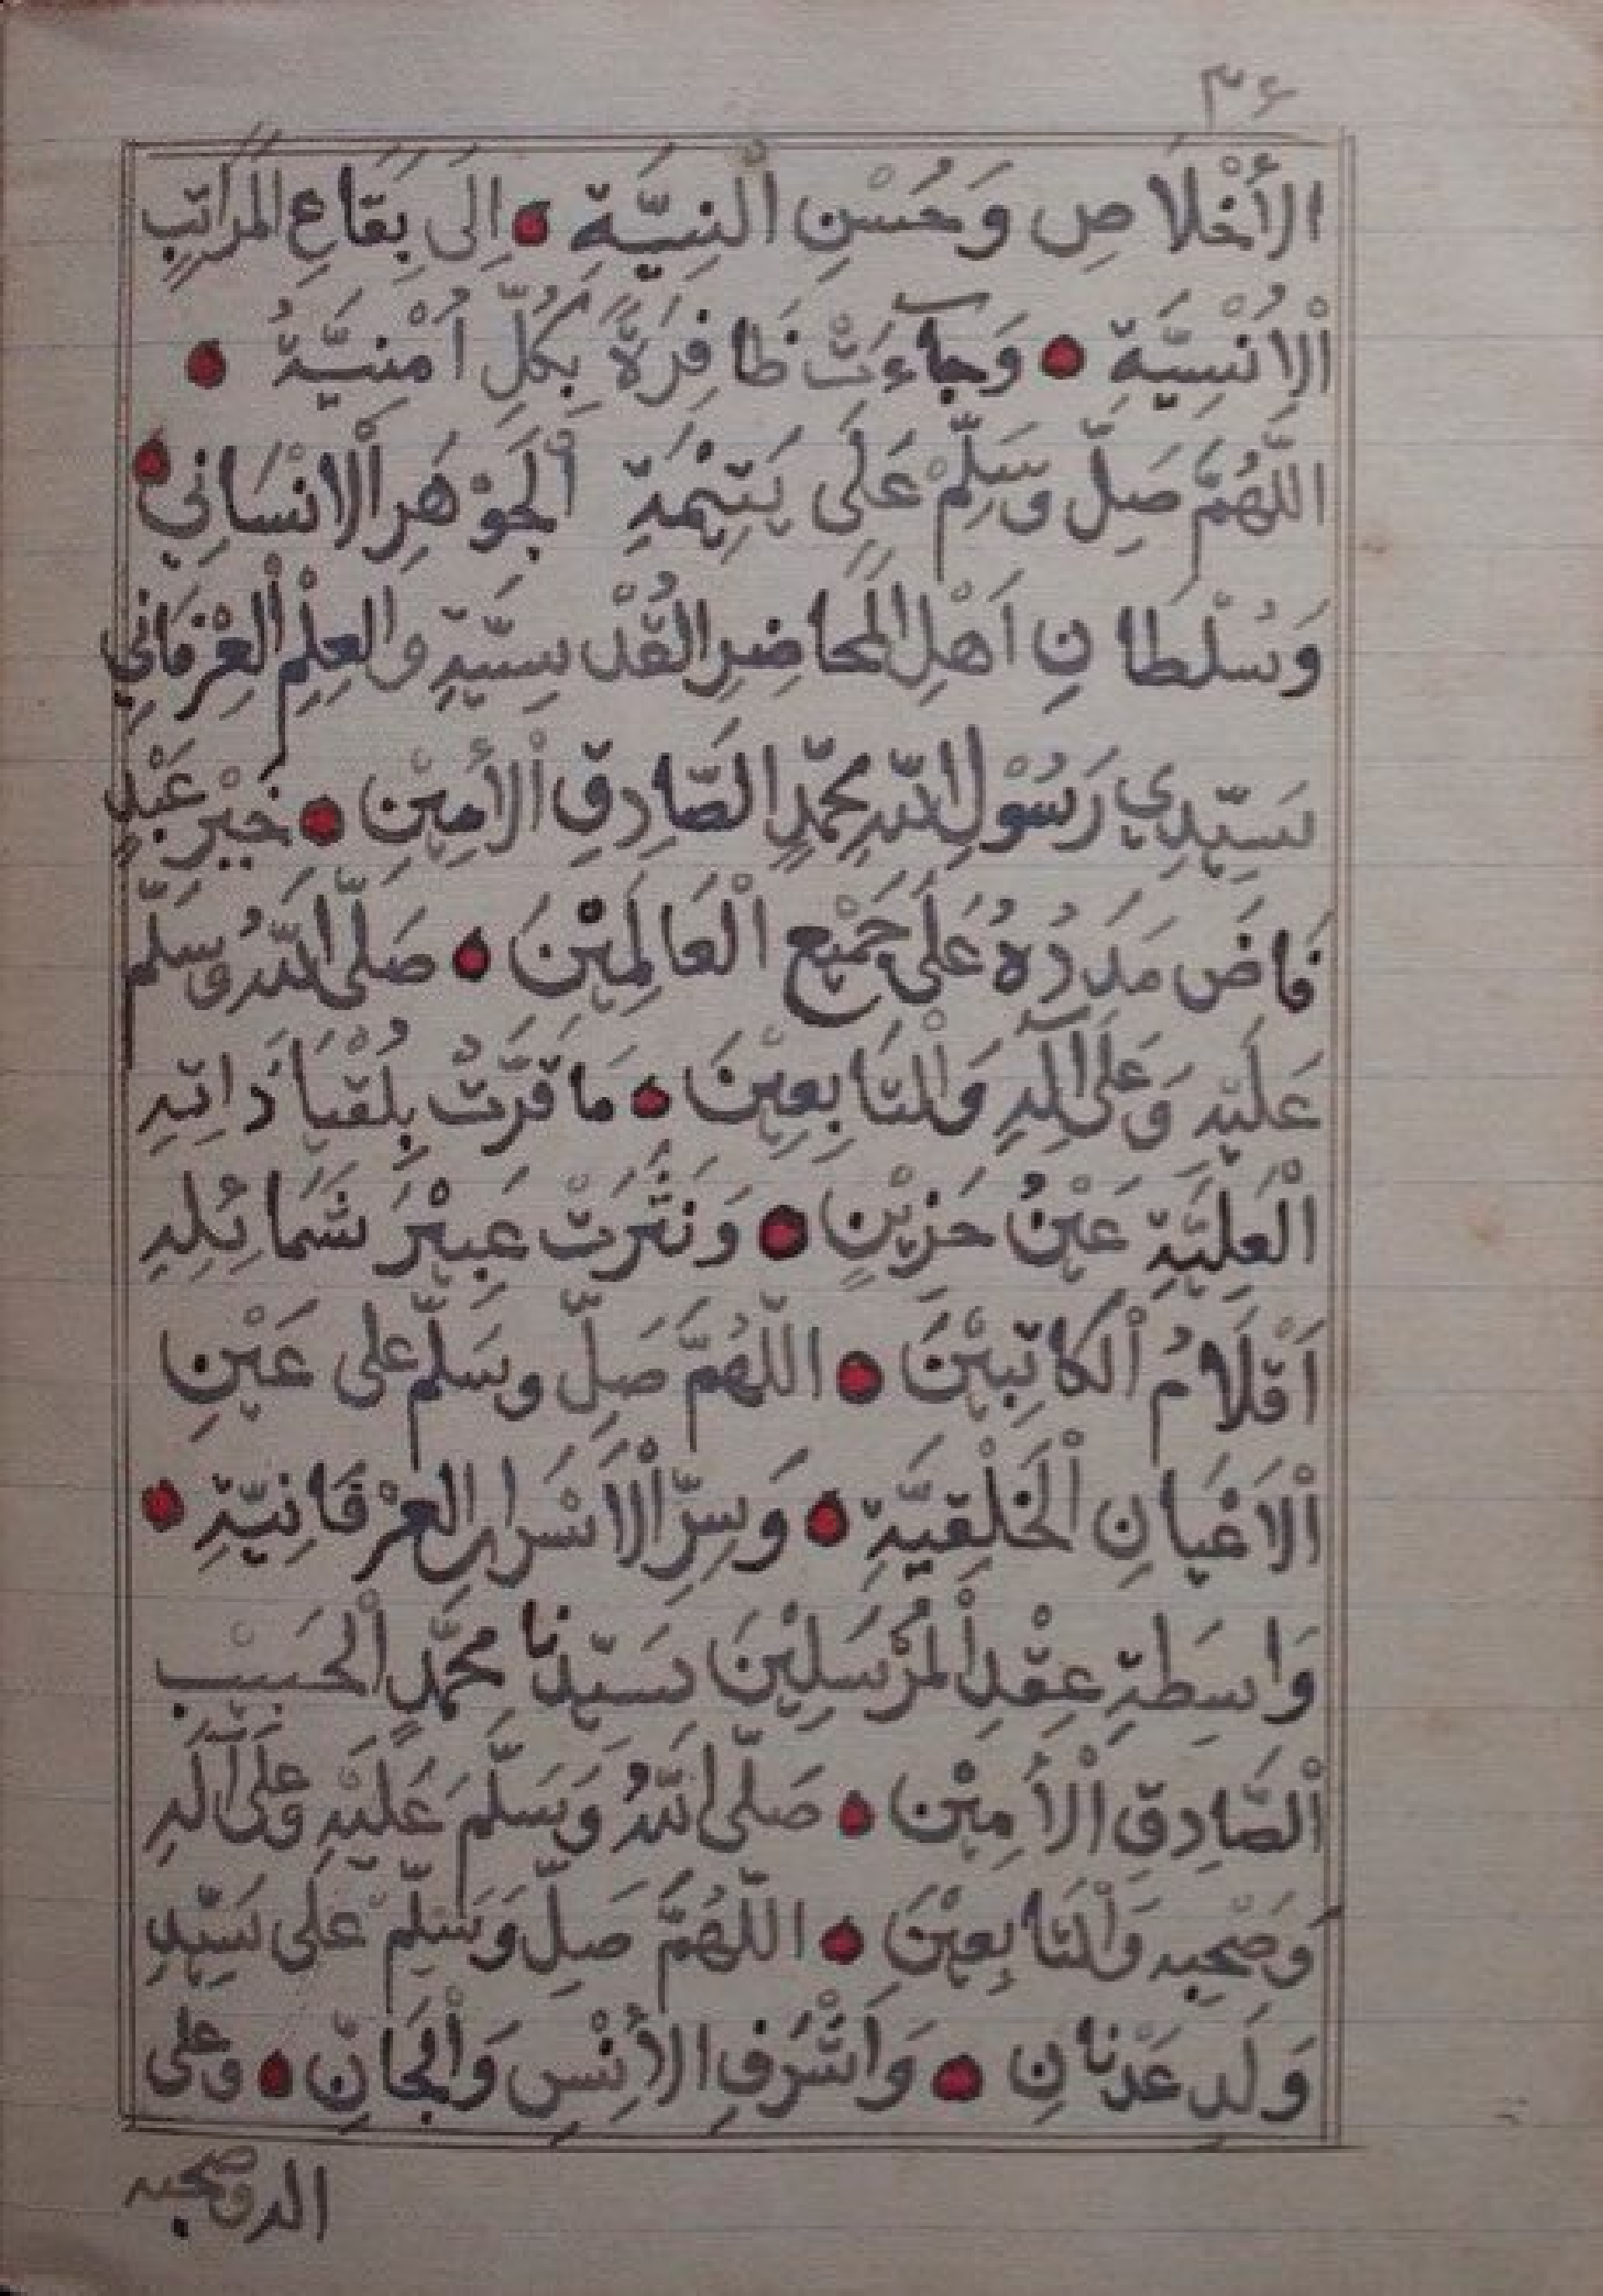 ٣٤
الأَخْلَاصِ وَحُسْنِ الْنِيَّةِ • اِلَى بِقَاعِ الْمَرَاتِبِ
الْاُنْسِيَّةِ • وَجَآءَتْ ظَافِرَةً بِكُلِّ اُمْنِيَّةُ •
اللَّهُمَّ صَلِّ وَسَلِّمْ عَلَى يَتِيْمَةِ اَلْجَوْهَرِ الْاِنْسَانِي •
وَسُلْطَانِ اَهْلِ الْمَحَاضِرِ الْقُدْسِيَّةِ وَالْعِلْمِ الْعِرْفَانِي
سَيِّدِي رَسُوْلِ اللّٰهِ مُحَمَّدٍ الصَّادِقِ الْأَمِيْنِ • خَيْرِ عَبْدٍ
فَاضَ مَدَدُهُ عَلَى جَمِيْعِ الْعَالَمِيْنَ • صَلَّى اللّٰهُ وَسَلَّمَ
عَلَيْهِ وَعَلَى آلِهِ وَالْتَابِعِيْنَ • مَا قَرَّتْ بِلُقْيَا ذَاتِهِ
الْعَلِيَّةِ عَيْنُ حَزِيْنٍ • وَنَثَرَتْ عَبِيْرَ شَمَائِلِهِ
اَقْلَامُ الْكَاتِبِيْنَ • اللّهُمَّ صَلِّ وسَلِّمْ على عَيْنِ
الْاَعْيَانِ الْخَلْقِيَّةِ • وَسِرِّ الْاَسْرَارِ الْعِرْفَانِيَّةِ •
وَاسِطَةِ عِقْدِ الْمُرْسَلِيْنَ سَيِّدِنَا مُحَمَّدٍ الْحَبيْب
الْصَّادِقِ الْأَمِيْنِ • صَلَّى اللّٰهُ وَسَلَّمَ عَلَيْهِ وَعَلَى آلِهِ
وَصَحْبِهِ وَالْتَابِعِيْنَ • اللّهُمَّ صَلِّ وَسَلِّمْ عَلَى سَيِّدِ
وَلَدِ عَدْنَانِ • وَاَشْرَفِ الأِنْسِ وَالْجَانِّ • وعلى
اله وصحبه